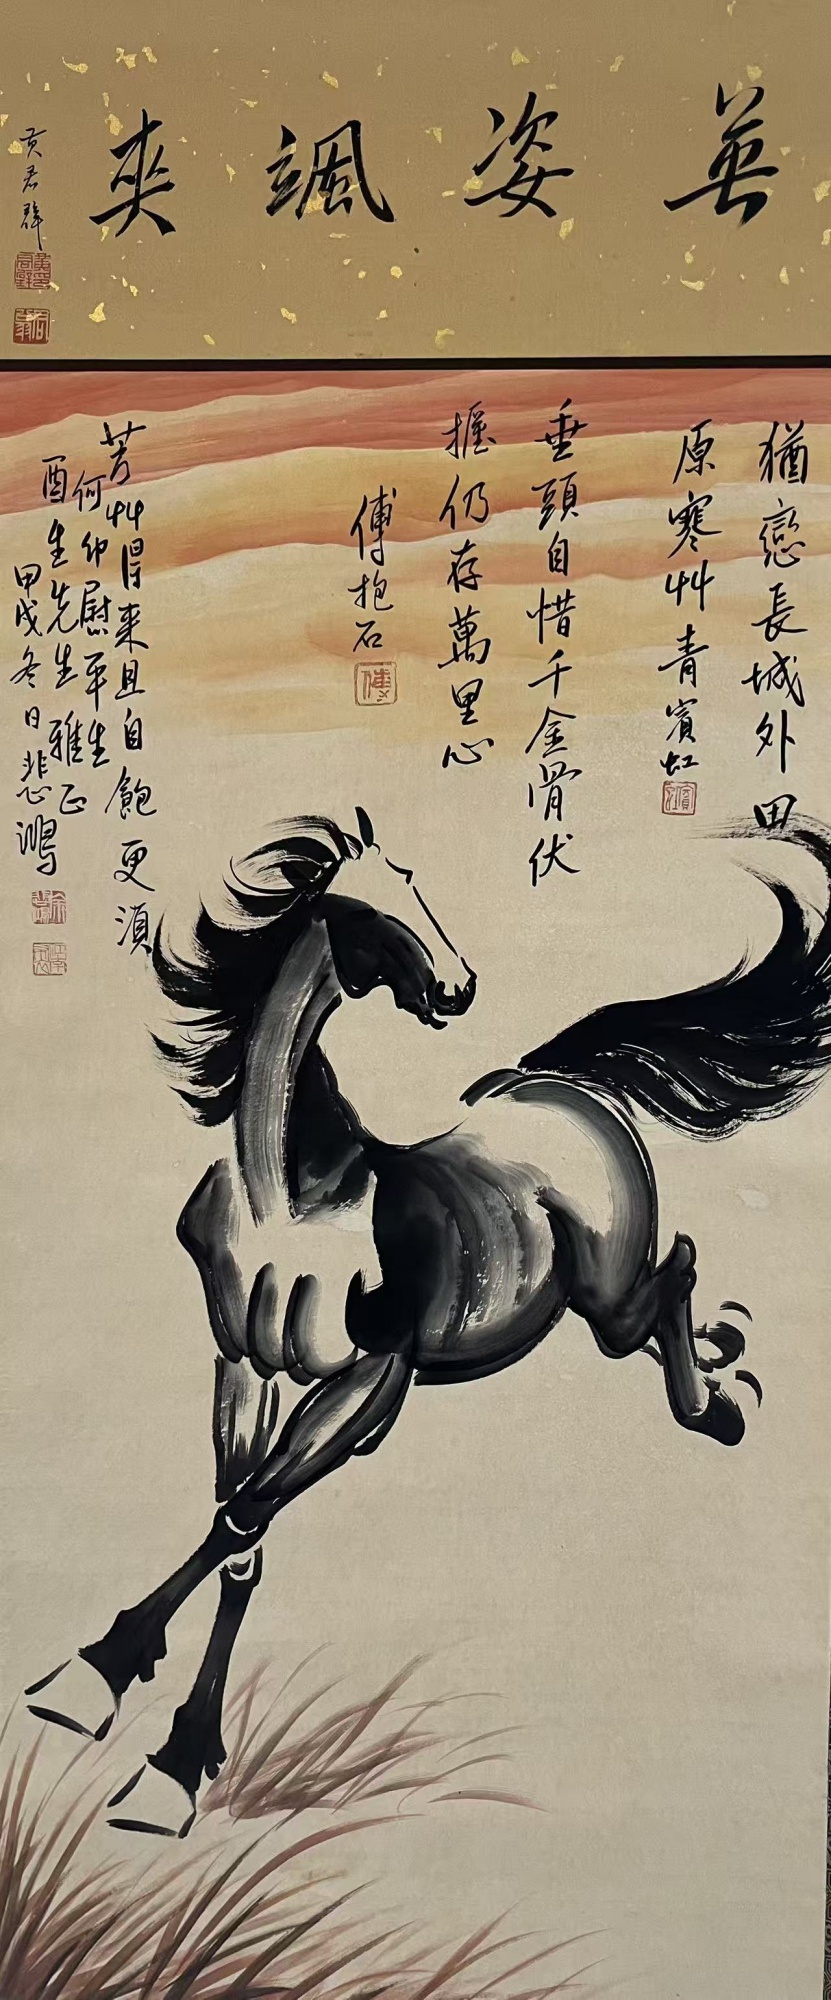 英姿颯爽
黄君群
猶戀長城外田
原寒艸青賓虹
垂頭自惜千金骨伏
櫪仍存萬里心
傅抱石
芳艸得来且自飽更須
何仰慰平生
酉生先生雅正
甲戌冬日悲鴻